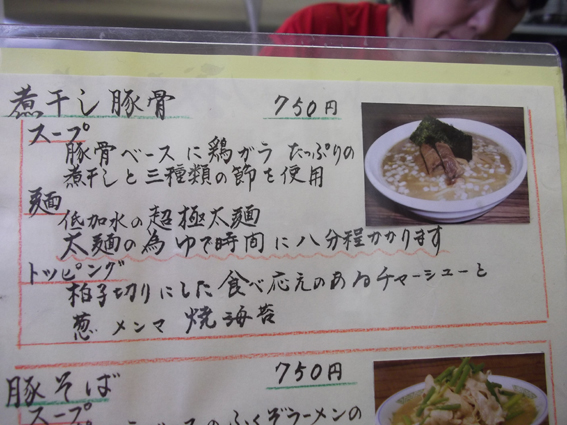 煮干し豚骨 750円
スープ
豚骨ベースに鶏ガラ たっぷりの
煮干しと三種類の節を使用
麺
低加水の超極太麺
太麺の為ゆで時間に八分程かかります
トッピング
拍子切りにした食べ応えのあるチャーシューと
葱 メンマ 焼海苔
豚そば 750円
スープ
ふくぞラーメンの